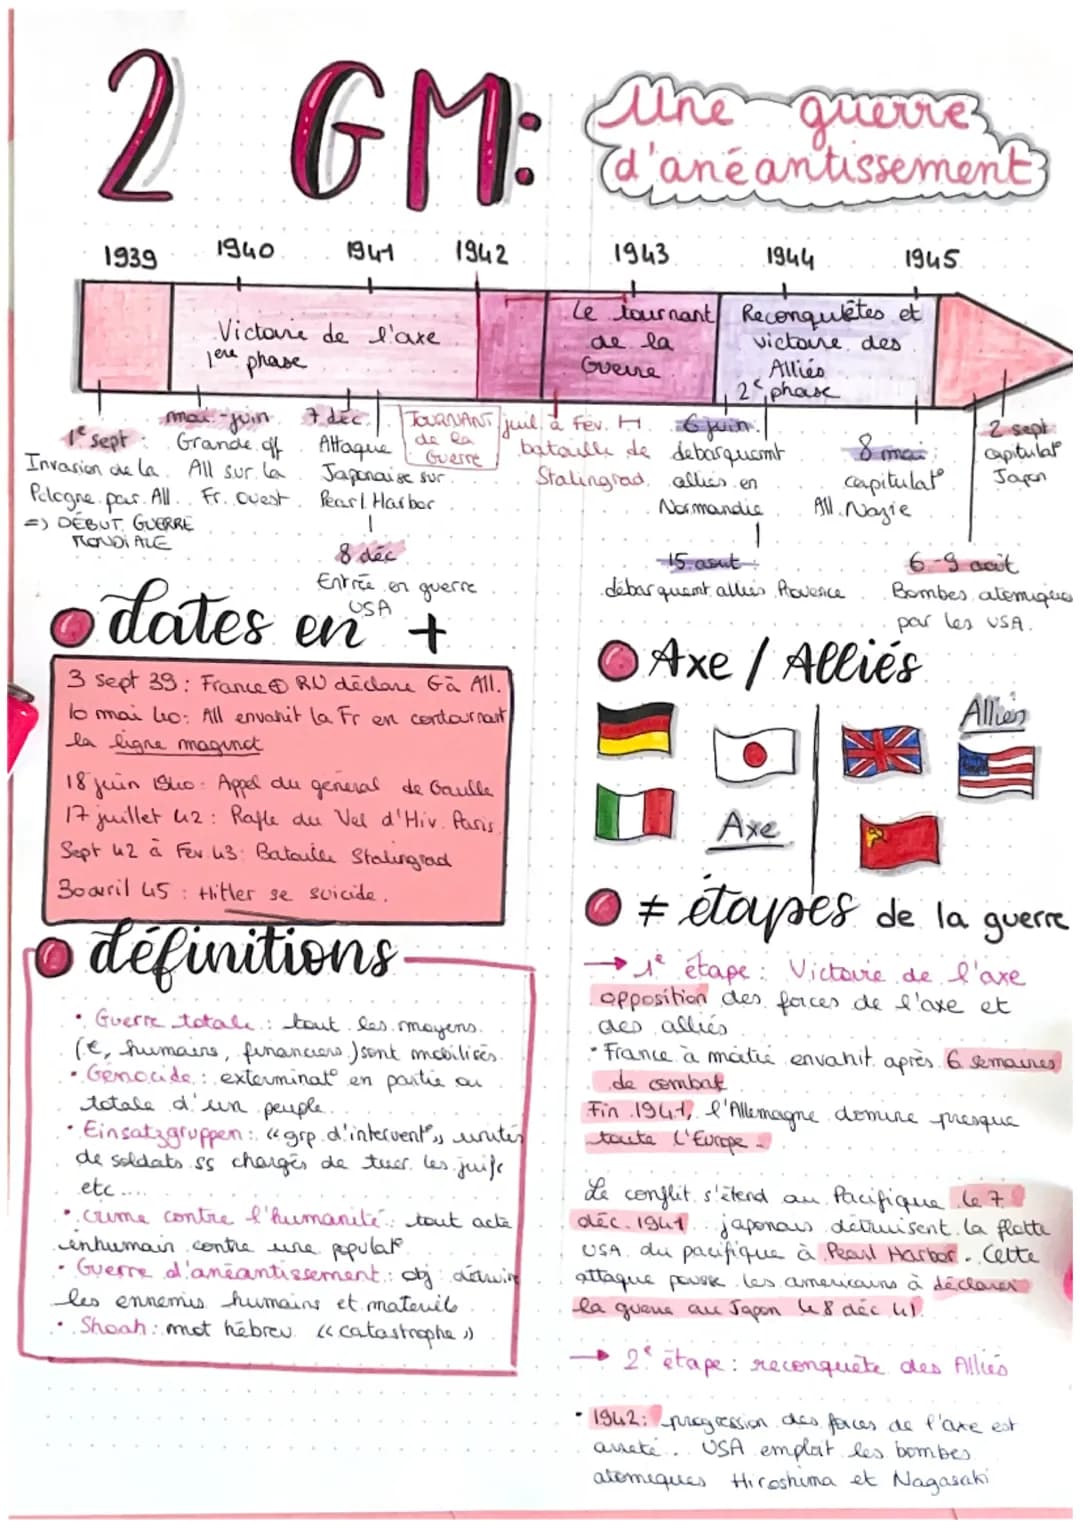 2 GM:
Une guerre
d'anéantissement
1939 1940 1941 1942 1943 1944 1945
Victoire de l'axe
1ere phase
Le tournant
de la
Guerre
Reconquêtes et
victoire des
Alliés
2e phase
1e sept :
Invasion de la
Pologne par All.
=> DÉBUT GUERRE
MONDIALE
mai-juin
Grande off
All sur la
Fr. Ouest
7 déc.
Attaque
Japonaise sur
Pearl Harbor
8 déc
Entrée en guerre
USA
TOURNANT
de la
Guerre
juil à Fev. H.
bataille de
Stalingrad
6 juin
debarquemt
alliés en
Normandie
15 aout
débarquent alliés Provence
8 mai
capitulat°
All. Nazie
2 sept
capitulat°
Japon
6-9 août
Bombes atomiques
par les USA.
dates en +
3 sept 39 : France ⊕ RU déclare G à All.
10 mai 40 : All envahit la Fr en contournant
la ligne maginot
18 juin 1940 : Appel du général de Gaulle
17 juillet 42 : Rafle du Vel d'Hiv. Paris
Sept 42 à Fev 43 : Bataille Stalingrad
30 avril 45 : Hitler se suicide.
Axe / Alliés
Alliés
Axe
définitions
• Guerre totale : tout les moyens
(€, humains, financiers) sont mobilisés.
• Génocide : exterminat° en partie ou
totale d'un peuple
• Einsatzgruppen : « grp d'intervent° » unités
de soldats ss chargés de tuer les juifs
etc ....
• crime contre l'humanité : tout acte
inhumain contre une populat°
• Guerre d'anéantissement : obj : détruire
les ennemis humains et matériels
• Shoah : mot hébreu « catastrophe »
≠ étapes de la guerre
→ 1e étape : Victoire de l'axe
opposition des forces de l'axe et
des alliés
• France à moitié envahit après 6 semaines
de combat
Fin 1941, l'Allemagne domine presque
toute l'Europe.
Le conflit s'étend au Pacifique le 7
déc. 1941 japonais détruisent la flotte
USA du pacifique à Pearl Harbor. Cette
attaque pousse les americains à déclarer
la guerre au Japon le 8 déc 41.
→ 2e étape : reconquête des Alliés
• 1942 : progression des forces de l'axe est
arreté. USA emploit les bombes
atomiques Hiroshima et Nagasaki